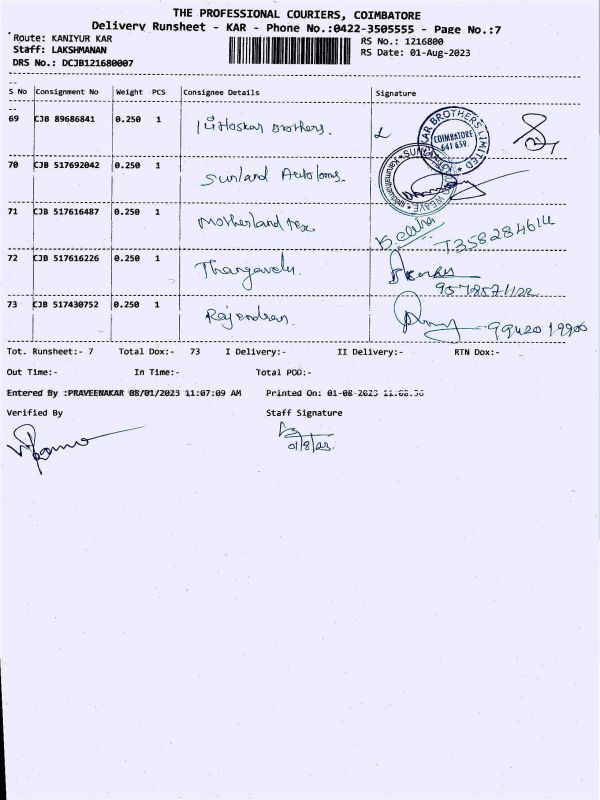 THE PROFESSIONAL COURIERS, COIMBATORE
Delivery Runsheet - KAR - Phone No.:0422-3505555 - Page No.:7
Route: KANIYUR KAR
RS No.: 1216800
Staff: LAKSHMANAN
RS Date: 01-Aug-2023
DRS No.: DCJB121680007
S No Consignment No Weight PCS Consignee Details Signature
69 CJB 89686841 0.250 1 Brothers.
KAR BROTHERS LIMITED
COIMBATORE
641 659.
70 CJB 517692042 0.250 1 Sunland Autoloms.
WEAVE
71 CJB 517616487 0.250 1 Motherland tex
72 CJB 517616226 0.250 1 Thangavelu.
73 CJB 517430752 0.250 1 Rajendran.
Tot. Runsheet:- 7 Total Dox:- 73 I Delivery:- II Delivery:- RTN Dox:-
Out Time:- In Time:- Total POD:-
Entered By :PRAVEENAKAR 08/01/2023 11:07:09 AM Printed On: 01-08-2023
Verified By Staff Signature
01/8/23.